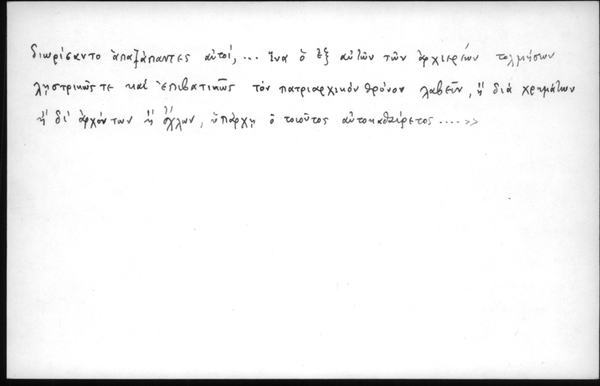 διωρίσαντο ἁπαξάπαντες αὐτοί, ... ἵνα ὁ ἐξ αὐτῶν τῶν ἀρχιερέων τολμήσων
λῃστρικῶς τε καί ἐπιβατικῶς τόν πατριαρχικόν θρόνον λαβεῖν, ἤ διά χρημάτων
ἤ δι' ἀρχόντων ἤ ὄχλων, ὑπάρχῃ ὁ τοιοῦτος αὐτοκαθαίρετος .... >>